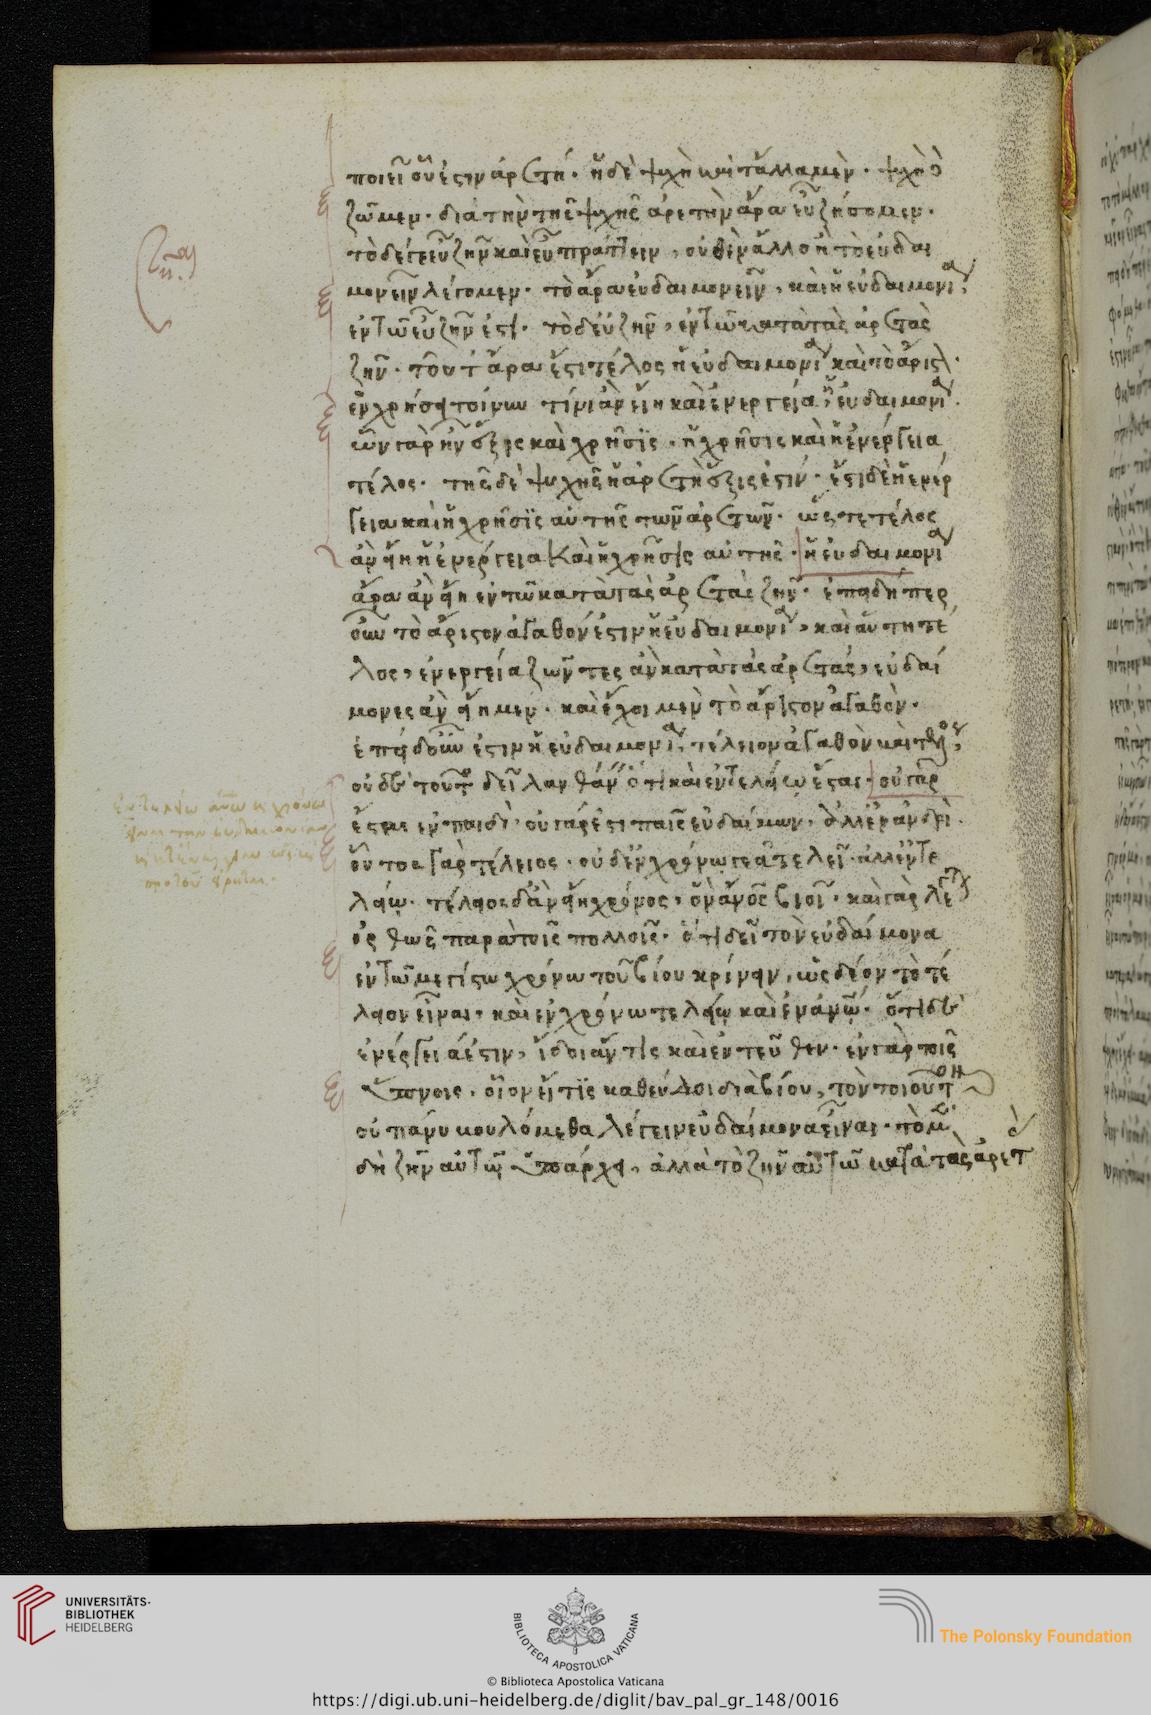 ποιεῖ οὗ ἐστιν ἀρετή. ἡ δὲ ψυχὴ καὶ τἆλλα μὲν. ψυχῇ δὲ
ζῶμεν. διὰ τὴν τῆς ψυχῆς ἀρετὴν ἄρα εὖ ζήσομεν.
τὸ δέ γε εὖ ζῆν καὶ εὖ πράττειν, οὐθὲν ἄλλο ἢ τὸ εὐδαι
μονεῖν λέγομεν. τὸ ἄρα εὐδαιμονεῖν, καὶ ἡ εὐδαιμονία,
ἐν τῷ εὖ ζῆν ἐστί. τὸ δ' εὖ ζῆν, ἐν τῷ κατὰ τὰς ἀρετὰς
ζῆν. τοῦτ' ἄρα ἐστὶ τέλος ἡ εὐδαιμονία καὶ τὸ ἄριστον.
ἐν χρήσει τοίνυν τινὶ ἂν εἴη καὶ ἐνεργείᾳ ἡ εὐδαιμονία.
ὧν γὰρ ἦν ἕξις καὶ χρῆσις, ἡ χρῆσις καὶ ἡ ἐνέργεια
τέλος. τῆς δὲ ψυχῆς ἡ ἀρετὴ ἕξις ἐστίν. ἔστι δὲ ἡ ἐνέρ
γεια καὶ ἡ χρῆσις αὐτῆς τῶν ἀρετῶν. ὥστε τέλος
ἂν εἴη ἡ ἐνέργεια καὶ ἡ χρῆσις αὐτῆς. ἡ εὐδαιμονία
ἄρα ἂν εἴη ἐν τῷ κατὰ τὰς ἀρετὰς ζῆν. ἐπειδήπερ
οὖν τὸ ἄριστον ἀγαθόν ἐστιν ἡ εὐδαιμονία, καὶ αὕτη τέ
λος, ἐνεργείᾳ ζῶντες ἂν κατὰ τὰς ἀρετὰς, εὐδαί
μονες ἂν εἴημεν. καὶ ἔχοιμεν τὸ ἄριστον ἀγαθὸν.
ἐπεὶ δ' οὖν ἐστιν ἡ εὐδαιμονία, τέλειον ἀγαθὸν καὶ τέλος,
οὐδὲ τοῦτο δεῖ λανθάνειν ὅτι καὶ ἐν τελείῳ ἔσται. οὐ γὰρ
ἔσται ἐν παιδὶ. οὐ γάρ ἐστι παῖς εὐδαίμων. ἀλλ' ἐν ἀνδρὶ.
οὗτος γὰρ τέλειος. οὐδ' ἐν χρόνῳ γε ἀτελεῖ. ἀλλ' ἐν τε
λείῳ. τέλειος δ' ἂν εἴη χρόνος, ὃν ἄνθρωπος βιοῖ. καὶ γὰρ λέγεται
ὀρθῶς παρὰ τοῖς πολλοῖς. ὅτι δεῖ τὸν εὐδαίμονα
ἐν τῷ μεγίστῳ χρόνῳ τοῦ βίου κρίνειν. ὡς δέον τὸ τέ
λειον εἶναι. καὶ ἐν χρόνῳ τελείῳ καὶ ἐν ἀνθρώπῳ. ὅτι δὲ
ἐνέργειά ἐστιν, ἴδοι ἄν τις καὶ ἐντεῦθεν. ἐν γὰρ τοῖς
ὕπνοις. οἷον εἴ τις καθεύδοι διὰ βίου, τὸν τοιοῦτον
οὐ πάνυ βουλόμεθα λέγειν εὐδαίμονα εἶναι. τὸ μὲν
δὴ ζῆν αὐτῷ ὑπάρχει, ἀλλὰ τὸ ζῆν αὐτῷ κατὰ τὰς ἀρετὰς
UNIVERSITÄTS-
BIBLIOTHEK
HEIDELBERG
BIBLIOTECA APOSTOLICA VATICANA
The Polonsky Foundation
© Biblioteca Apostolica Vaticana
https://digi.ub.uni-heidelberg.de/diglit/bav_pal_gr_148/0016